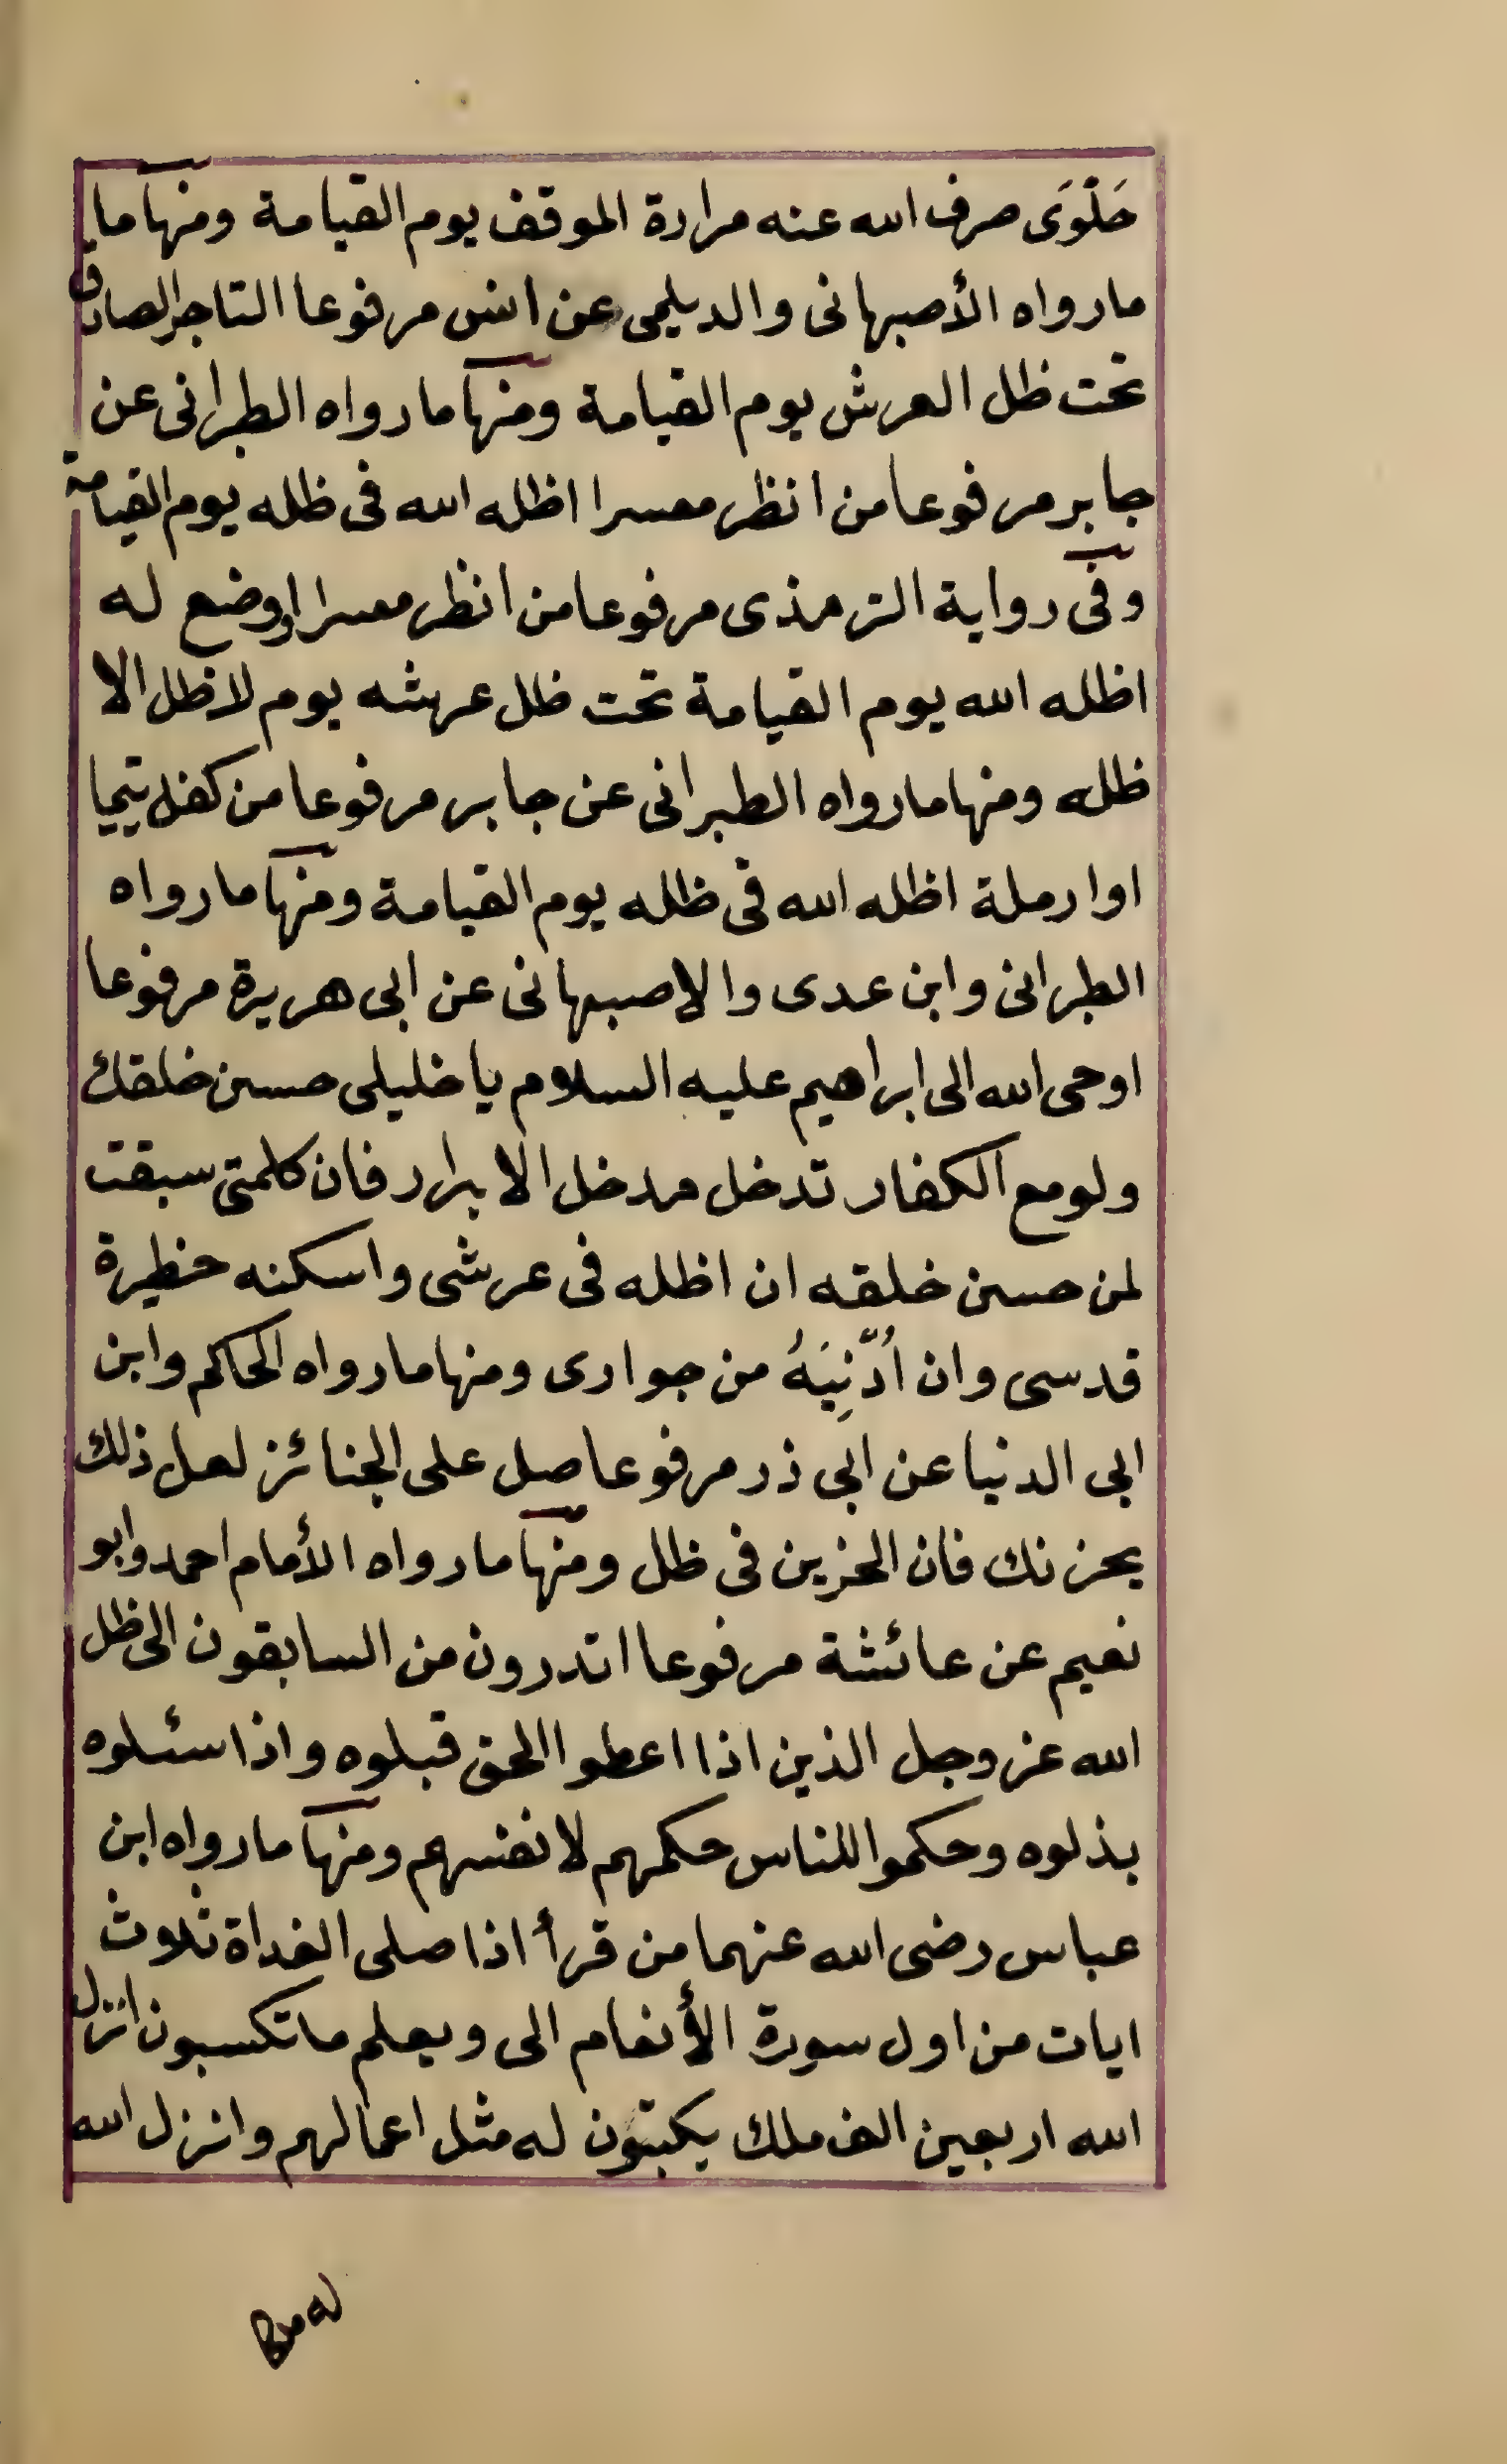 حَلْوَى صرف الله عنه مرارة الموقف يوم القيامة ومنها ما
مارواه الأصبهانى والديلمى عن انس مرفوعا التاجر الصادق
تحت ظل العرش يوم القيامة ومنها مارواه الطبرانى عن
جابر مرفوعا من انظر معسرا اظله الله فى ظله يوم القيامة
وفى رواية الترمذى مرفوعا من انظر معسرا اووضع له
اظله الله يوم القيامة تحت ظل عرشه يوم لا ظل الا
ظله ومنها مارواه الطبرانى عن جابر مرفوعا من كفل يتيما
اوارملة اظله الله فى ظله يوم القيامة ومنها مارواه
الطبرانى وابن عدى والاصبهانى عن ابى هريرة مرفوعا
اوحى الله الى ابراهيم عليه السلام يا خليلى حسن خلقك
ولومع الكفار تدخل مدخل الابرار فان كلمتى سبقت
لمن حسن خلقه ان اظله فى عرشى واسكنه حظيرة
قدسى وان اُدّنِيَهُ من جوارى ومنها مارواه الحاكم وابن
ابى الدنيا عن ابى ذر مرفوعا صل على الجنائز لعل ذلك
يحزنك فان الحزين فى ظل ومنها مارواه الأمام احمد وابو
نعيم عن عائشة مرفوعا اتدرون من السابقون الى ظل
الله عز وجل الذين اذا اعطوا الحق قبلوه واذا سئلوه
بذلوه وحكموا للناس حكمهم لانفسهم ومنها مارواه ابن
عباس رضى الله عنهما من قرأ اذا صلى الغداة ثلاث
ايات من اول سورة الأنعام الى ويعلم ماتكسبون انزل
الله اربعين الف ملك يكتبون له مثل اعمالهم وانزل الله